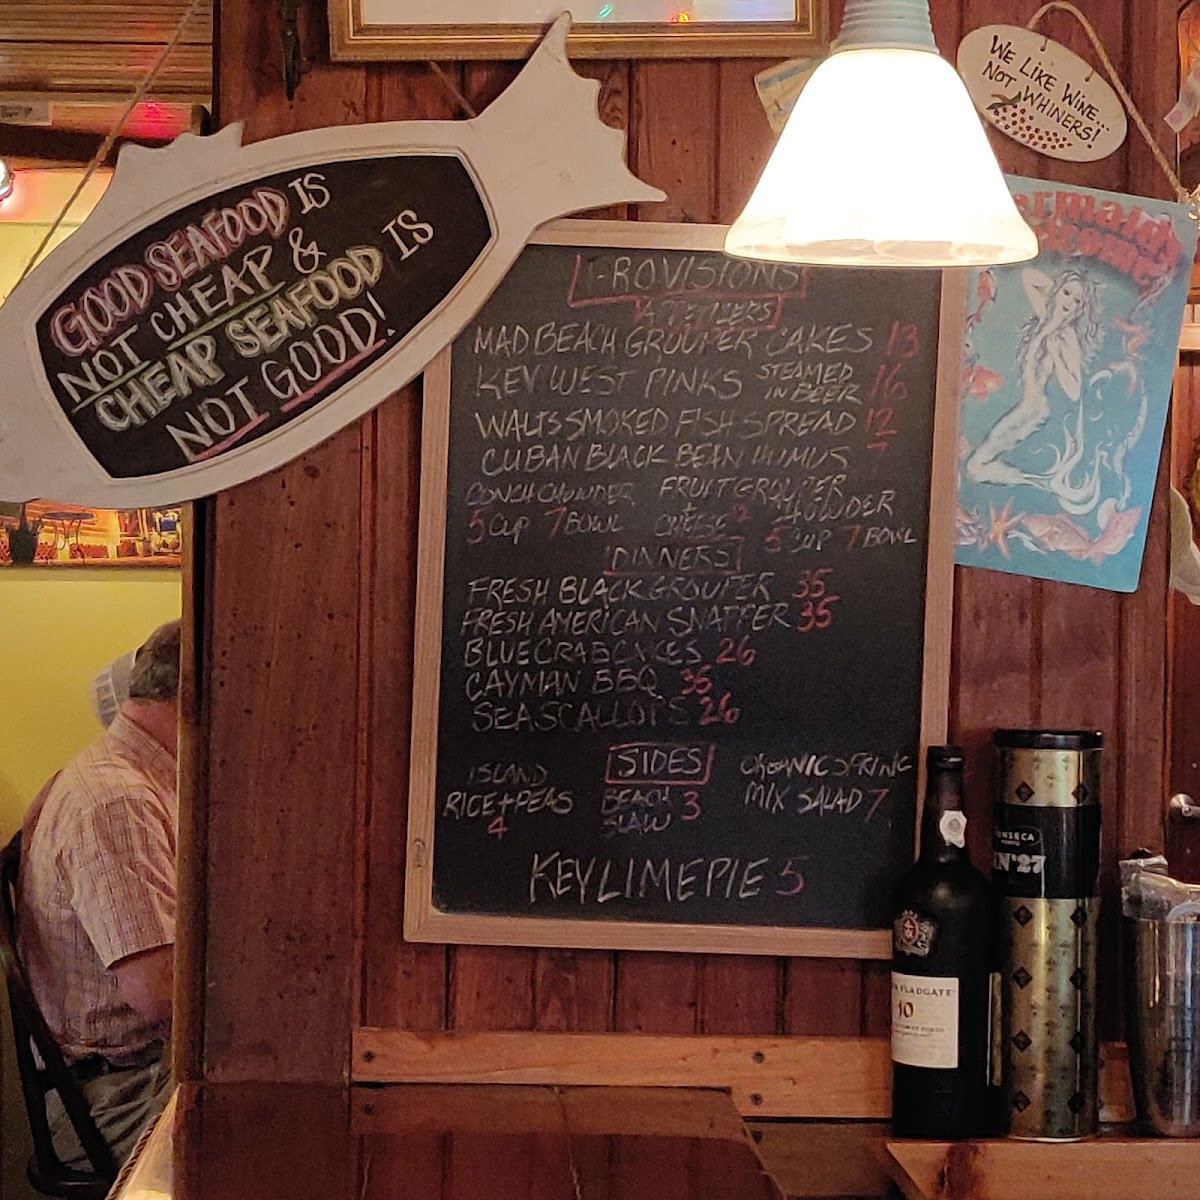 GOOD SEAFOOD IS
NOT CHEAP &
CHEAP SEAFOOD IS
NOT GOOD!
WE LIKE WINE..
NOT WHINERS!
PROVISIONS
APPETIZERS
MAD BEACH GROUPER CAKES 13
KEY WEST PINKS STEAMED IN BEER 16
WALTS SMOKED FISH SPREAD 12
CUBAN BLACK BEAN HUMUS 7
CONCH CHOWDER
5 CUP 7 BOWL
FRUIT +
CHEESE
GROUPER
CHOWDER
5 CUP 7 BOWL
DINNERS
FRESH BLACK GROUPER 35
FRESH AMERICAN SNAPPER 35
BLUE CRABCAKES 26
CAYMAN BBQ 35
SEA SCALLOPS 26
SIDES
ISLAND
RICE + PEAS
4
BEACH
SLAW 3
ORGANIC SPRING
MIX SALAD 7
KEY LIME PIE 5
FLADGATE
10
FONSECA
BIN Nº27